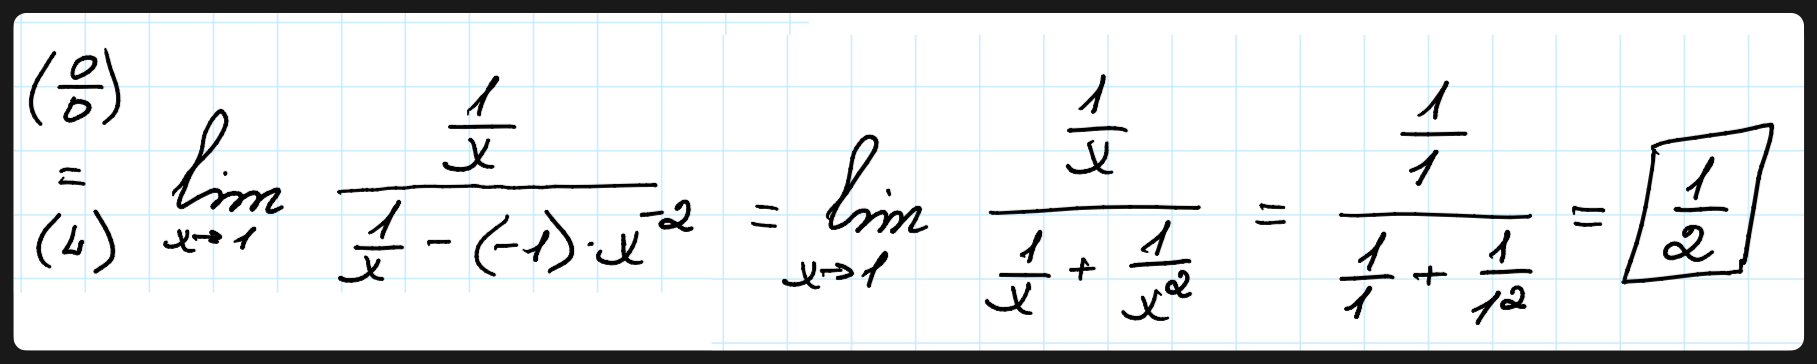 (0/0) = (L) lim x→1 (1/x)/(1/x - (-1)·x^-2) = lim x→1 (1/x)/(1/x + 1/x^2) = (1/1)/(1/1 + 1/1^2) = 1/2